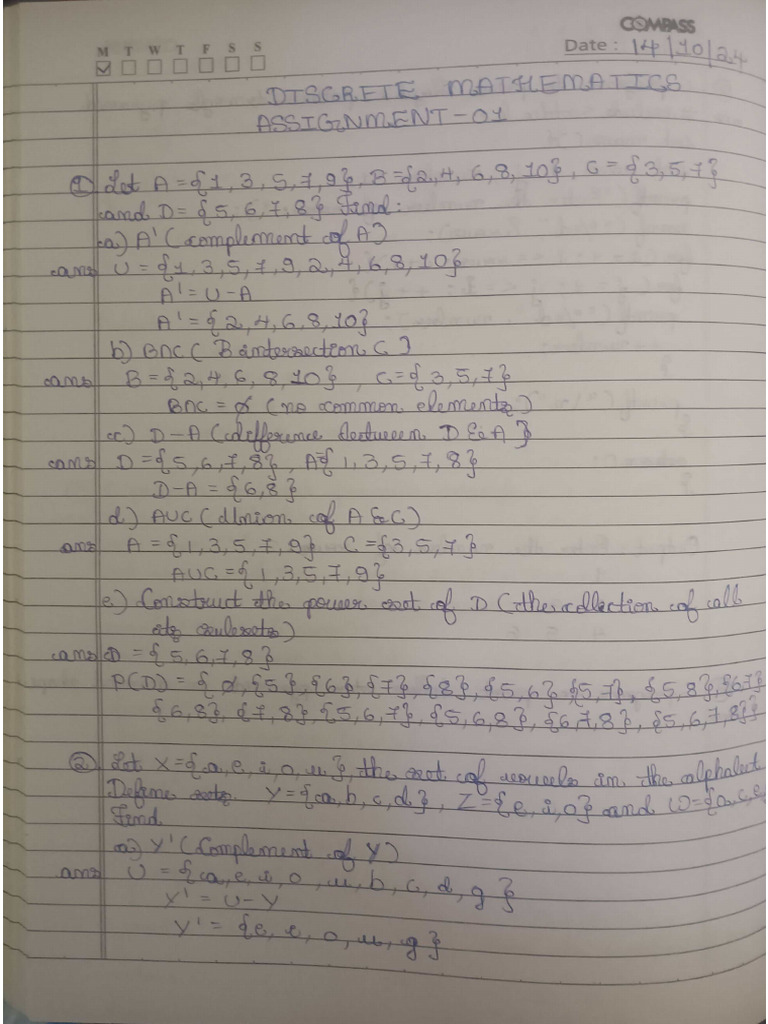 COMPASS
M T W T F S S
Date : 14/10/24
DISCRETE MATHEMATICS
ASSIGNMENT-01
① Let A = {1, 3, 5, 7, 9}, B = {2, 4, 6, 8, 10}, C = {3, 5, 7}
and D = {5, 6, 7, 8} Find:
a) A' (complement of A)
ans U = {1, 3, 5, 7, 9, 2, 4, 6, 8, 10}
A' = U - A
A' = {2, 4, 6, 8, 10}
b) B∩C ( B intersection C )
ans B = {2, 4, 6, 8, 10} , C = {3, 5, 7}
B∩C = ø (no common elements)
c) D-A (difference between D & A }
ans D = {5, 6, 7, 8} , A={1, 3, 5, 7, 8}
D-A = {6, 8}
d) AUC (Union of A & C)
ans A = {1, 3, 5, 7, 9} C = {3, 5, 7}
AUC = {1, 3, 5, 7, 9}
e) Construct the power set of D (the collection of all
its subsets)
ans D = {5, 6, 7, 8}
P(D) = { ø, {5}, {6}, {7}, {8}, {5, 6} {5, 7}, {5, 8}, {6 7}
{6, 8}, {7, 8}, {5, 6, 7}, {5, 6, 8}, {6, 7, 8}, {5, 6, 7, 8}}
② Let X = {a, e, i, o, u}, the set of vowels in the alphabet
Define sets Y = {a, b, c, d}, Z = {e, i, o} and W = {a, c, e,
Find
a) Y' (Complement of Y)
ans U = {a, e, i, o, u, b, c, d, g}
Y' = U - Y
Y' = {e, i, o, u, g}